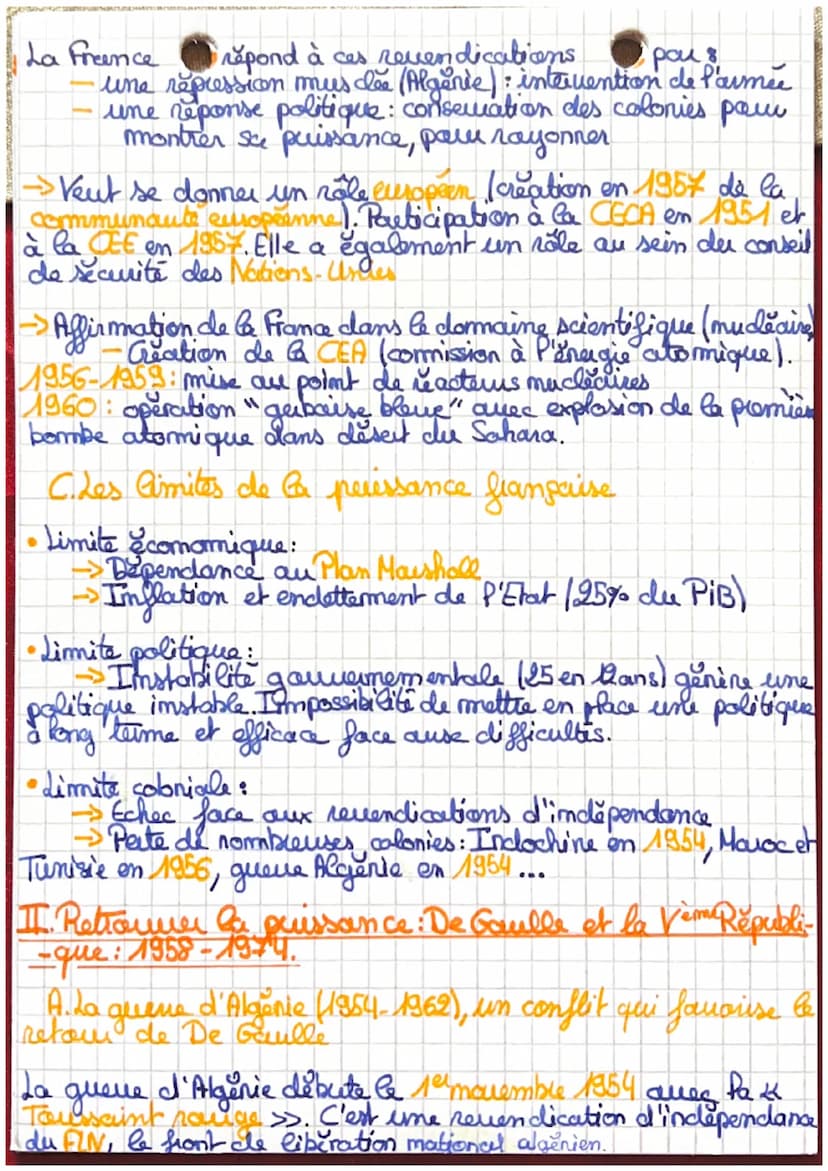 La France répond à ces revendications par :
— une répression musclée (Algérie) : intervention de l'armée
— une réponse politique : conservation des colonies pour
montrer sa puissance, pour rayonner
-> Veut se donner un rôle européen (création en 1957 de la
communauté européenne). Participation à la CECA en 1951 et
à la CEE en 1957. Elle a également un rôle au sein du conseil
de sécurité des Nations-Unies
-> Affirmation de la France dans le domaine scientifique (nucléaire)
— Création de la CEA (comission à l'énergie atomique).
1956-1959 : mise au point de réacteurs nucléaires
1960 : opération "gerboise bleue" avec explosion de la première
bombe atomique dans désert du Sahara.
C. Les limites de la puissance française
• Limite économique :
-> Dépendance au Plan Marshall
-> Inflation et endettement de l'Etat (25% du PiB)
• Limite politique :
-> Instabilité gouvernementale (25 en 12 ans) génère une
politique instable. Impossibilité de mettre en place une politique
à long terme et efficace face aux difficultés.
• Limite coloniale :
-> Echec face aux revendications d'indépendance
-> Perte de nombreuses colonies : Indochine en 1954, Maroc et
Tunisie en 1956, guerre Algérie en 1954...
II. Retrouver la puissance : De Gaulle et la Vème Républi-
-que : 1958 - 1974.
A. La guerre d'Algérie (1954-1962), un conflit qui favorise le
retour de De Gaulle
La guerre d'Algérie débute le 1er novembre 1954 avec la «
Toussaint rouge ». C'est une revendication d'indépendance
du FLN, le front de libération national algérien.